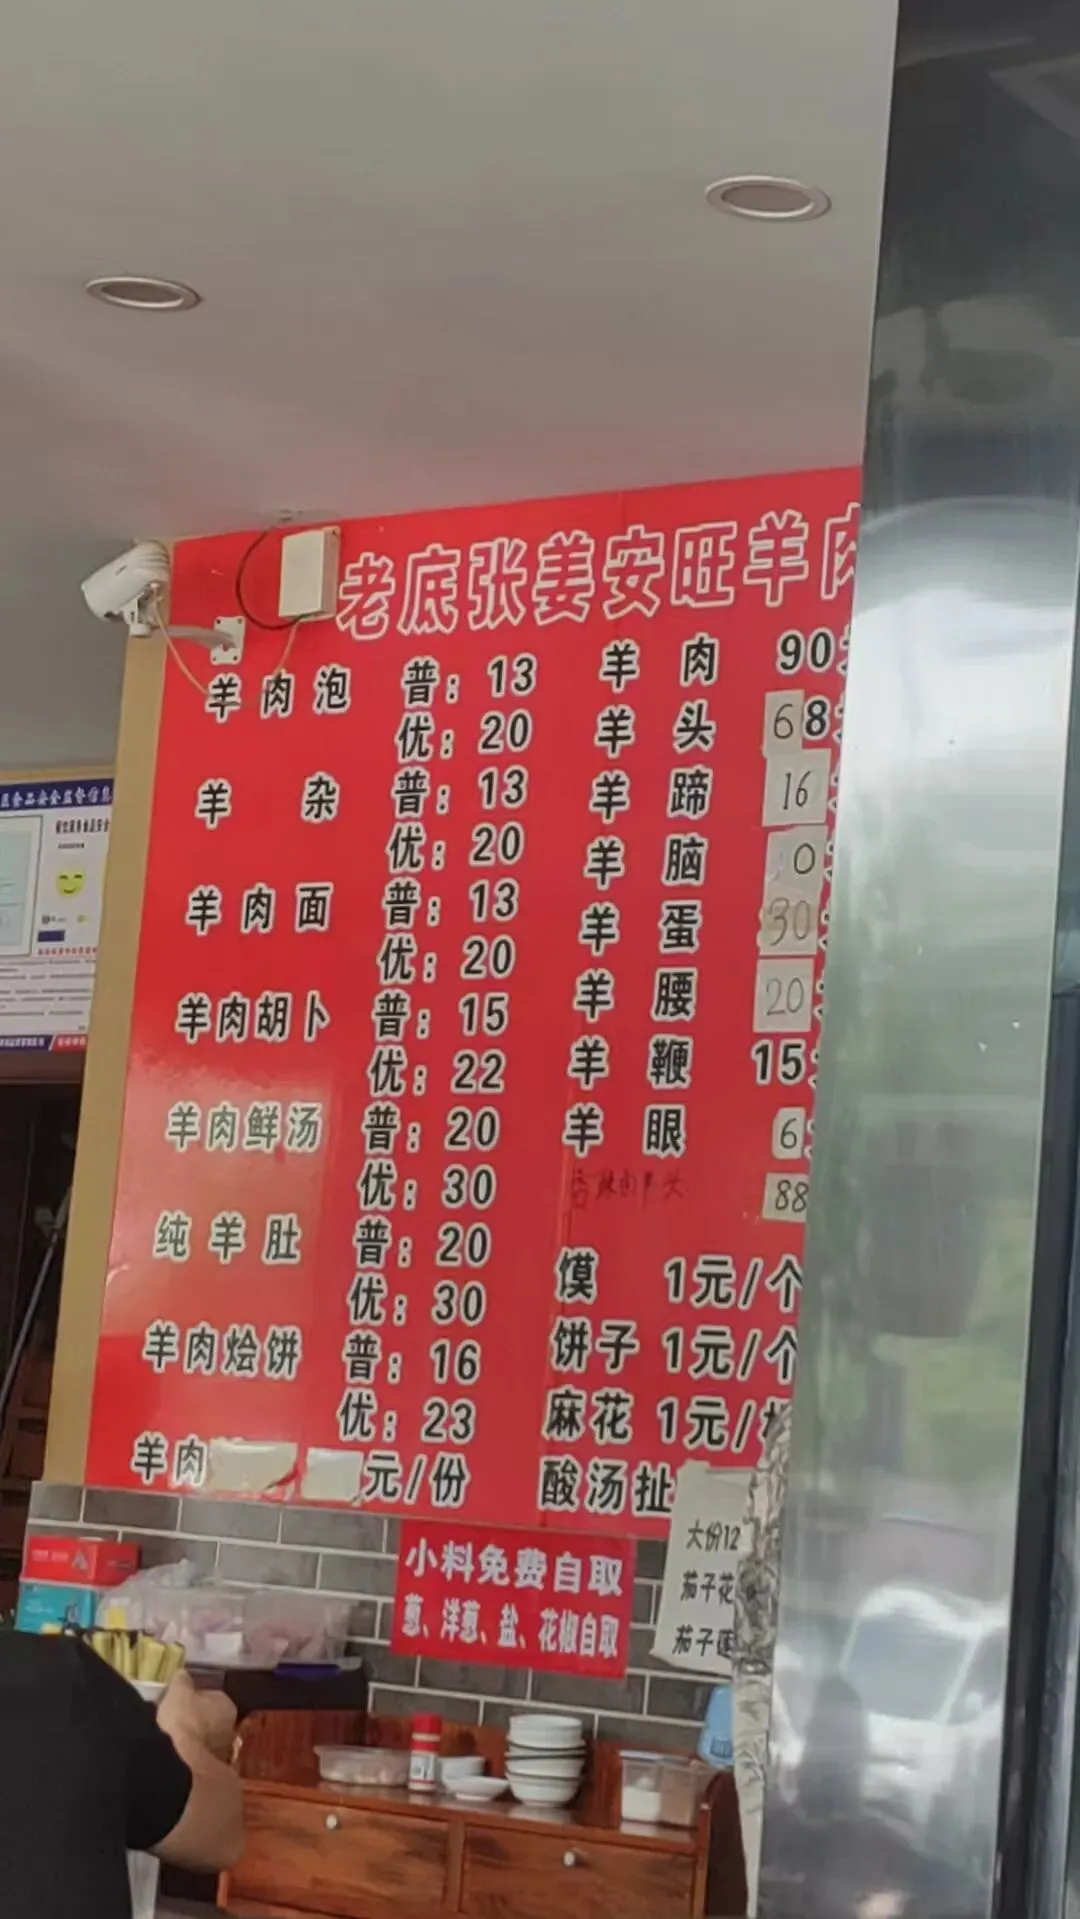 老底张姜安旺羊肉
羊肉泡 普：13
优：20
羊杂 普：13
优：20
羊肉面 普：13
优：20
羊肉胡卜 普：15
优：22
羊肉鲜汤 普：20
优：30
纯羊肚 普：20
优：30
羊肉烩饼 普：16
优：23
羊肉 元/份
羊肉 90
羊头 68
羊蹄 16
羊脑 10
羊蛋 30
羊腰 20
羊鞭 15
羊眼 6
羊头 88
馍 1元/个
饼子 1元/个
麻花 1元/
酸汤扯
大份12
茄子花
茄子
小料免费自取
葱、洋葱、盐、花椒自取
区食品安全监督信息
餐饮服务食品安全